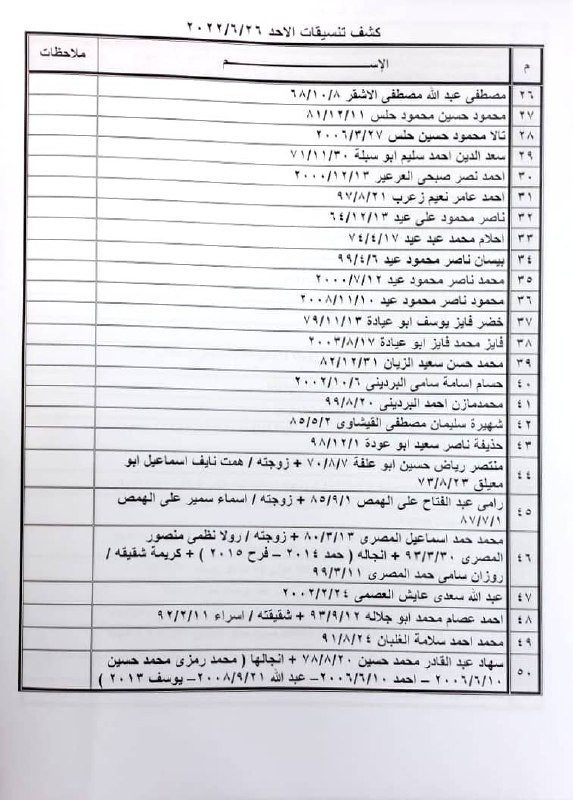 كشف تنسيقات الاحد ٢٠٢٢/٦/٢٦
م الإســـم ملاحظات
٢٦ مصطفى عبد الله مصطفى الاشقر ٦٨/١٠/٨
٢٧ محمود حسين محمود حلس ٨١/١٢/١١
٢٨ تالا محمود حسين حلس ٢٠٠٦/٣/٢٧
٢٩ سعد الدين احمد سليم ابو سبلة ٧١/١١/٣٠
٣٠ احمد نصر صبحى العرعير ٢٠٠٠/١٢/١٣
٣١ احمد عامر نعيم زعرب ٩٧/٨/٢١
٣٢ ناصر محمود على عيد ٦٤/١٢/١٣
٣٣ احلام محمد عبد عيد ٧٤/٤/١٧
٣٤ بيسان ناصر محمود عيد ٩٩/٤/٦
٣٥ محمد ناصر محمود عيد ٢٠٠٠/٧/١٢
٣٦ محمود ناصر محمود عيد ٢٠٠٨/١١/١٠
٣٧ خضر فايز يوسف ابو عيادة ٧٩/١١/١٣
٣٨ فايز محمد فايز ابو عيادة ٢٠٠٣/٨/١٧
٣٩ محمد حسن سعيد الزيان ٨٢/١٢/٣١
٤٠ حسام اسامة سامى البردينى ٢٠٠٢/١٠/٦
٤١ محمدمازن احمد البردينى ٩٩/٨/٢٠
٤٢ شهيرة سليمان مصطفى القيشاوى ٨٥/٥/٢
٤٣ حذيفة ناصر سعيد ابو عودة ٩٨/١٢/١
٤٤ منتصر رياض حسين ابو علفة ٧٠/٨/٧ + زوجته / همت نايف اسماعيل ابو
معيلق ٧٣/٨/٢٣
٤٥ رامى عبد الفتاح على الهمص ٨٥/٩/١ + زوجته / اسماء سمير على الهمص
٨٧/٧/١
٤٦ محمد حمد اسماعيل المصرى ٨٠/٣/١٣ + زوجته / رولا نظمى منصور
المصرى ٩٣/٣/٣٠ + انجاله ( حمد ٢٠١٤ – فرح ٢٠١٥ ) + كريمة شقيقه /
روزان سامى حمد المصرى ٩٩/٣/١١
٤٧ عبد الله سعدى عايش العصمى ٢٠٠٢/٢/٢٤
٤٨ احمد عصام محمد ابو جلاله ٩٣/٩/١٢ + شقيقته / اسراء ٩٢/٢/١١
٤٩ محمد احمد سلامة الغلبان ٩١/٨/٢٤
٥٠ سهاد عبد القادر محمد حسين ٧٨/٨/٢٠ + انجالها ( محمد رمزى محمد حسين
٢٠٠٦/٦/١٠ – احمد ٢٠٠٦/٦/١٠– عبد الله ٢٠٠٨/٩/٢١– يوسف ٢٠١٣ )